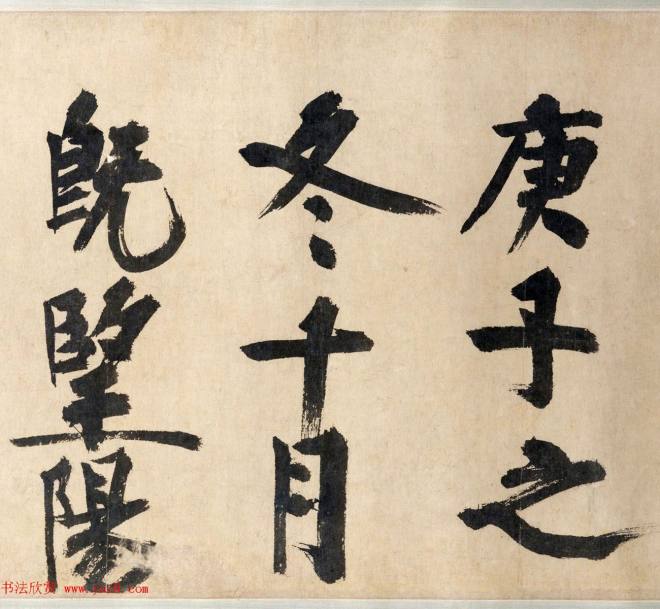 庚子之
冬十月
既朢陽
书法欣赏 www.yac8.com